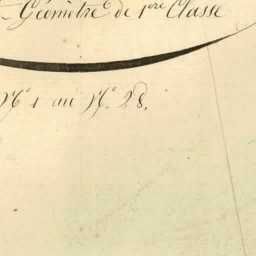 Géomètre de 1ère Classe
Nº 1 au Nº 28.